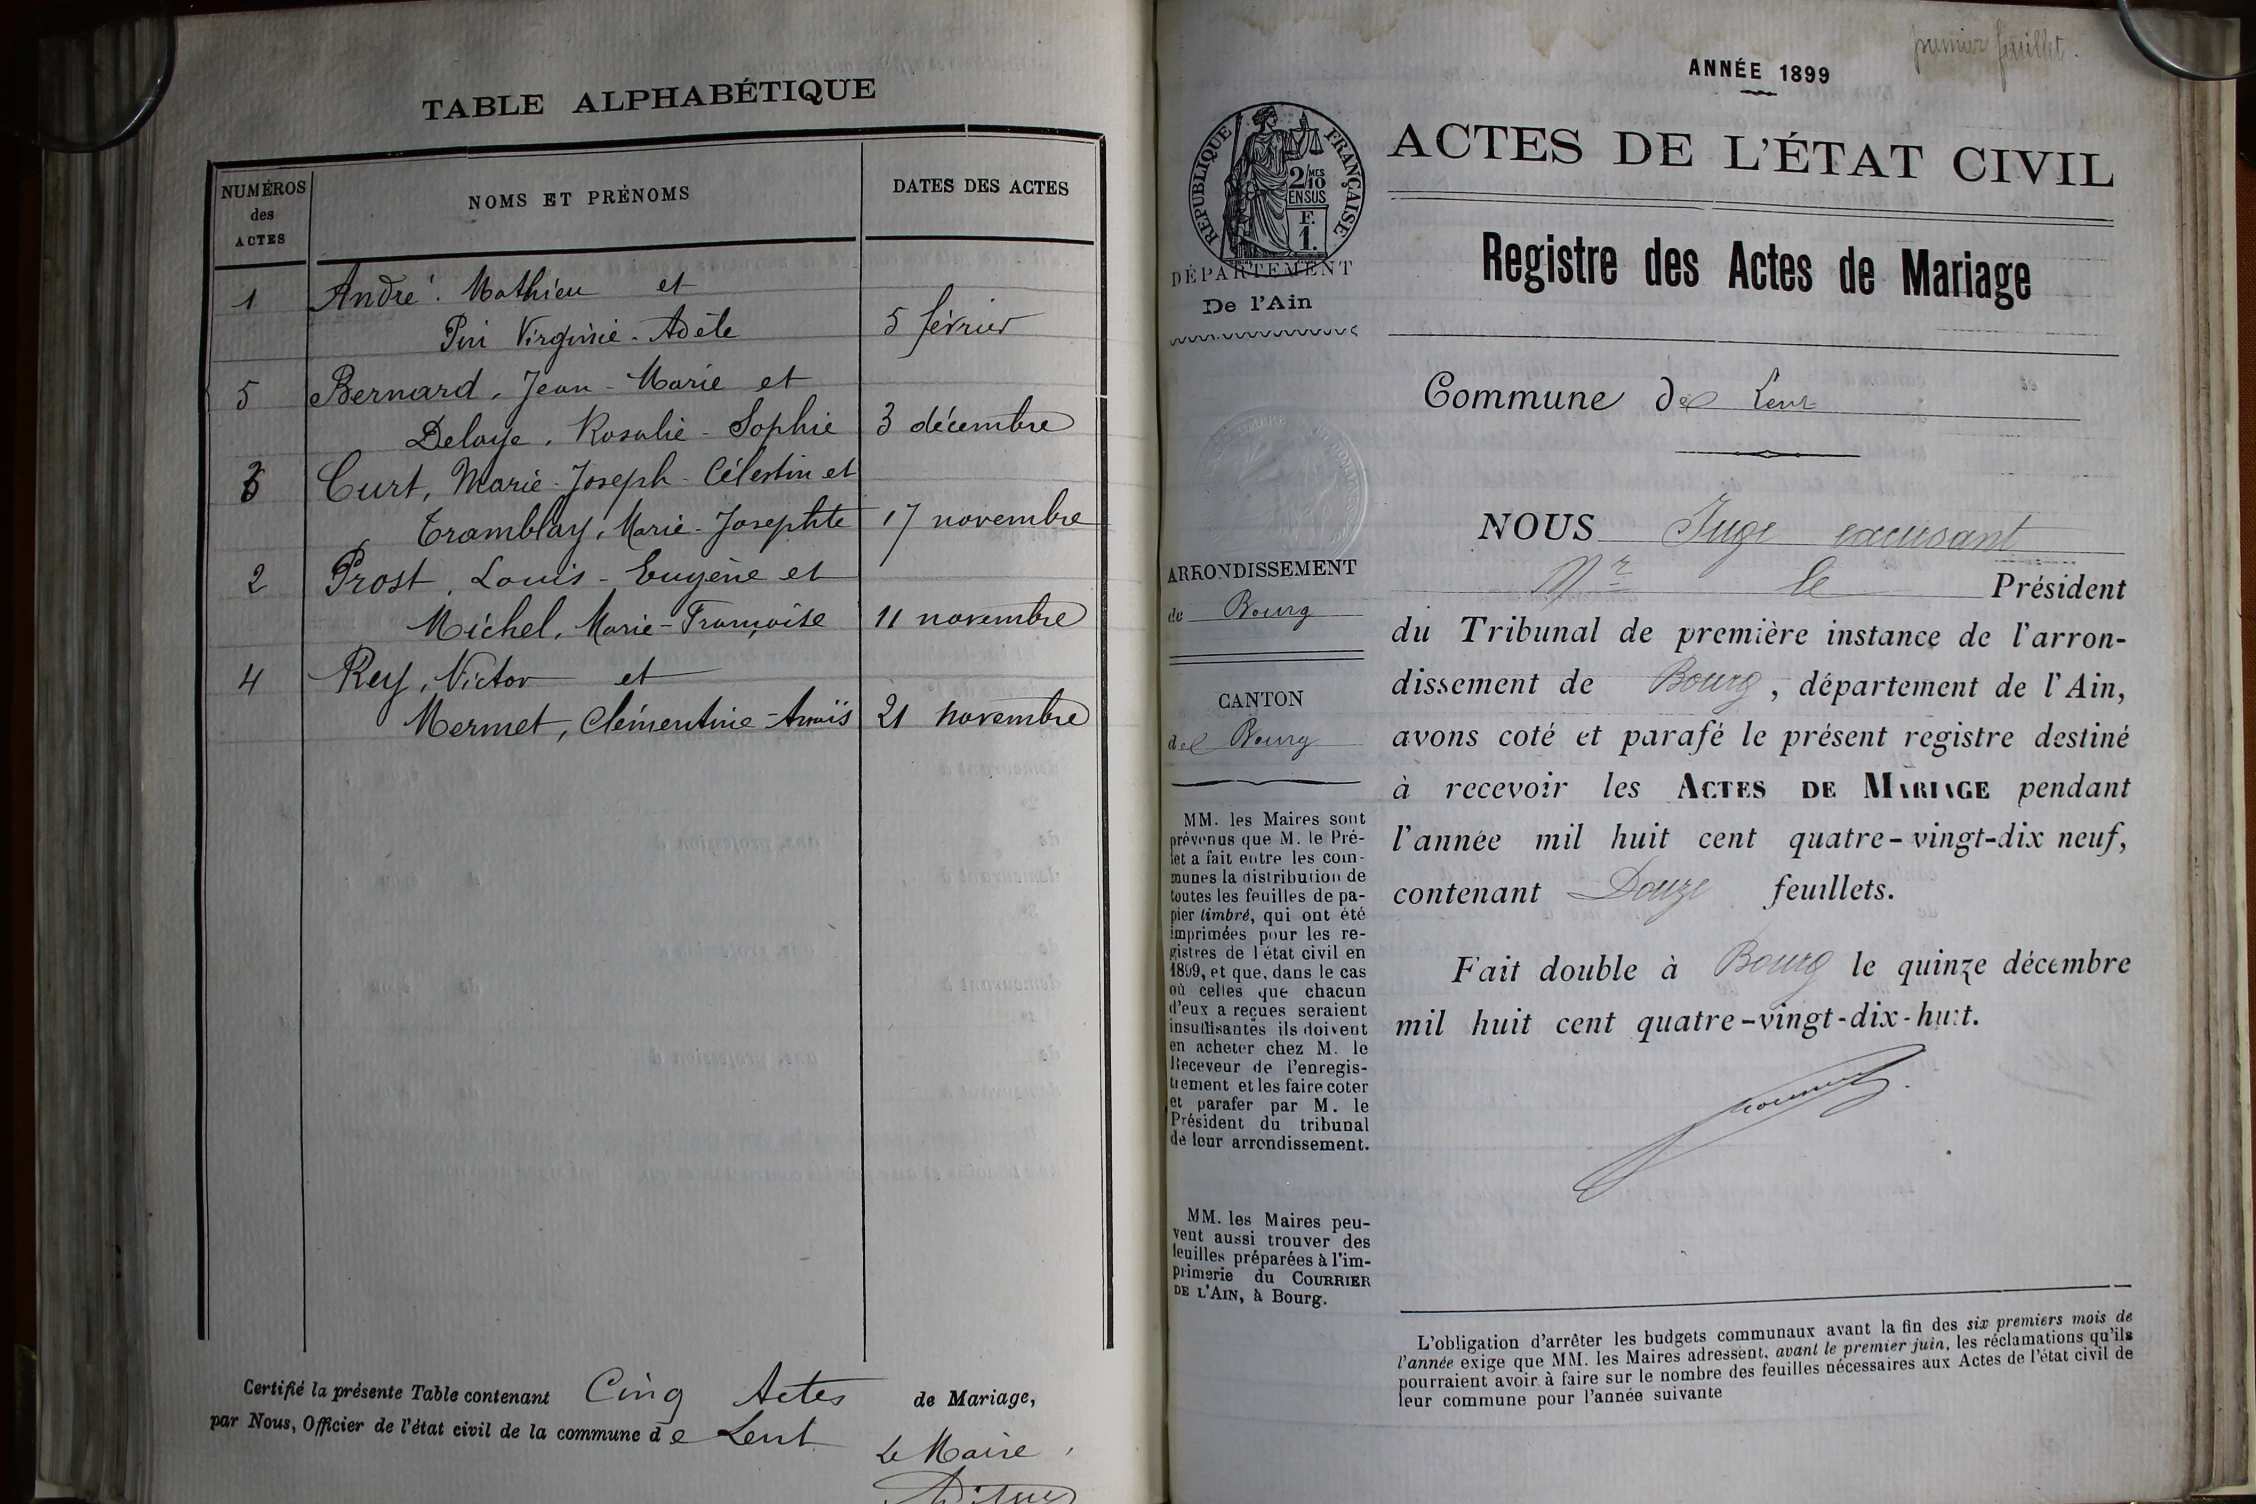 TABLE ALPHABÉTIQUE
NUMÉROS
des
ACTES
NOMS ET PRÉNOMS
DATES DES ACTES
1 André. Mathieu et
Pin Virginie-Adèle 5 février
5 Bernard, Jean-Marie et
Delaye, Rosalie-Sophie 3 décembre
3 Curt, Marie-Joseph-Célestin et
Tramblay, Marie-Josephte 17 novembre
2 Prost, Louis-Eugène et
Michel, Marie-Françoise 11 novembre
4 Rey, Victor et
Mermet, Clémentine- 21 novembre
Certifié la présente Table contenant Cinq Actes de Mariage,
par Nous, Officier de l'état civil de la commune de Lent
Le Maire,
premier feuillet.
ANNÉE 1899
RÉPUBLIQUE FRANÇAISE
2/10 MES
EN SUS
F.
1.
DÉPARTEMENT
De l'Ain
ACTES DE L'ÉTAT CIVIL
Registre des Actes de Mariage
Commune de Lent
ARRONDISSEMENT
de Bourg
CANTON
de Bourg
MM. les Maires sont
prévenus que M. le Pré-
fet a fait entre les com-
munes la distribution de
toutes les feuilles de pa-
pier timbré, qui ont été
imprimées pour les re-
gistres de l'état civil en
1899, et que, dans le cas
où celles que chacun
d'eux a reçues seraient
insuffisantes ils doivent
en acheter chez M. le
Receveur de l'enregis-
trement et les faire coter
et parafer par M. le
Président du tribunal
de leur arrondissement.
MM. les Maires peu-
vent aussi trouver des
feuilles préparées à l'im-
primerie du COURRIER
DE L'AIN, à Bourg.
NOUS Juge excusant
Mr le Président
du Tribunal de première instance de l'arron-
dissement de Bourg, département de l'Ain,
avons coté et parafé le présent registre destiné
à recevoir les ACTES DE MARIAGE pendant
l'année mil huit cent quatre-vingt-dix neuf,
contenant Douze feuillets.
Fait double à Bourg le quinze décembre
mil huit cent quatre-vingt-dix-huit.
L'obligation d'arrêter les budgets communaux avant la fin des six premiers mois de
l'année exige que MM. les Maires adressent, avant le premier juin, les réclamations qu'ils
pourraient avoir à faire sur le nombre des feuilles nécessaires aux Actes de l'état civil de
leur commune pour l'année suivante